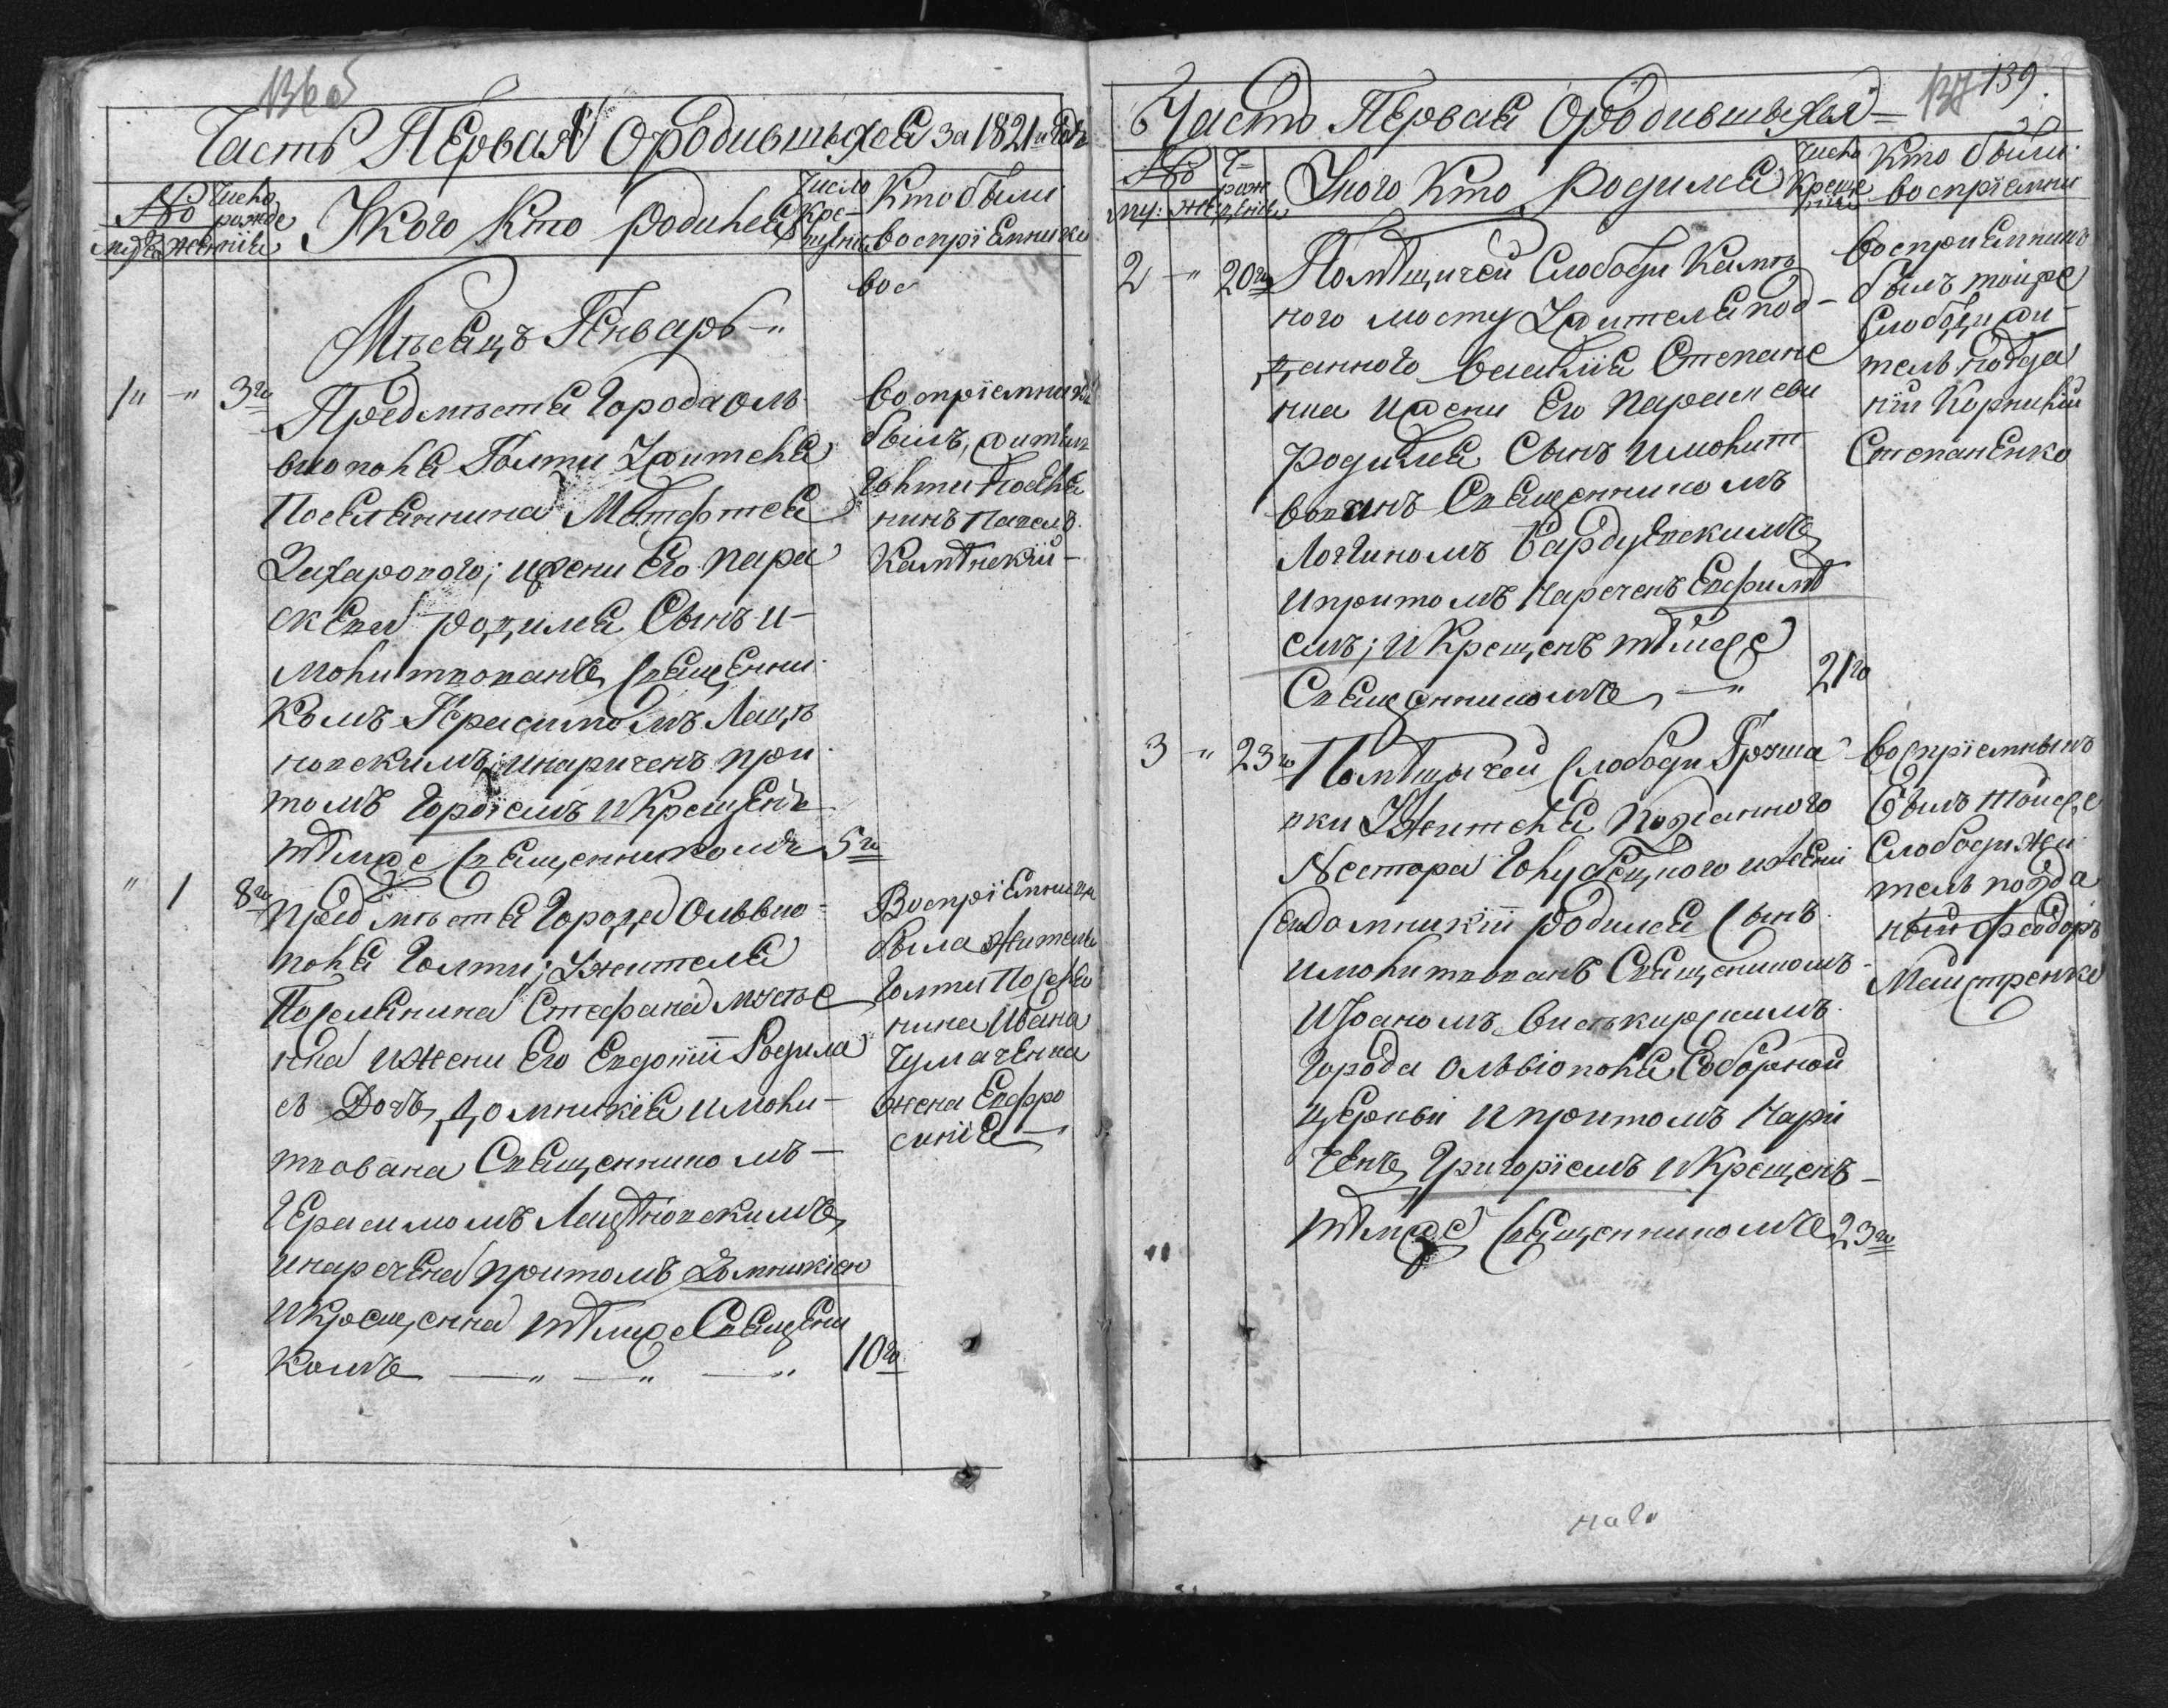 136 об
Часть Первая О родившыхся за 1821й годъ
№
Число рожденія
мужъ женъ
У кого кто родился
Число крещенія
Кто были воспріемники
вос
Мѣсяцъ Генварь
1 " 3го
Предмѣстя Города Оль
виополя Голты Ужителя
Поселянина Матфтея
Захарового; ижени Его пара
скевы родился Сынъ и
молитвованъ Священни
комъ Герасимомъ Лащѣ
новскимъ; инариченъ при
томъ Гордіемъ и Крещенъ
тѣмже Священникомъ 5го
Воспріемникъ
былъ, житель
Голти Поселя
нинъ Павелъ
Камѣнскій
" 1 8го
Предмѣстя Города Ольвіо
поля Голти; Ужителя
Поселянина Стефана
ижени Его Евдокіи Родила
сь Дочь, Домникія имоли
твована Священникомъ
Герасимомъ Лащѣновскимъ,
инаречена притомъ Домникіею
и Крещенна тѣмже Священи
комъ 10го
Воспріемница
была Жителя
Голти Поселя
нина Ивана
Чумаченка
жена Евфро
синія
137 139
Часть Первая О родившыхся
№
Ч. рожденія
му: же
У кого кто родился
Число крещенія
Кто были воспріемники
2 " 20го
Помѣщичей Слободи Камѣ
ного мосту Ужителя под
данного Василія Степане
нка ижени Его Параскеви
родился Сынъ имолит
вованъ Священникомъ
Логиномъ
ипритомъ Нареченъ Евфимѣ
емъ; и Крещенъ тѣмже
Священникомъ 21го
воспріемникъ
былъ тойже
Слободи жи
тель подда
ній Корнилій
Степаненко
3 " 23го
Помѣщичей Слободи Груша
вки Ужителя Подданного
Нестора Голубецкого ижени
Домникіи родился Сынъ
имолитвованъ Священикомъ
Иоаномъ
Города Ольвіополя Соборной
церкви ипритомъ Нари
ченъ, Григоріемъ и Крещенъ
тѣмже Священникомъ 23го
воспріемникъ
былъ тойже
Слободи жи
тель подда
ный Феодоръ
Майстренко